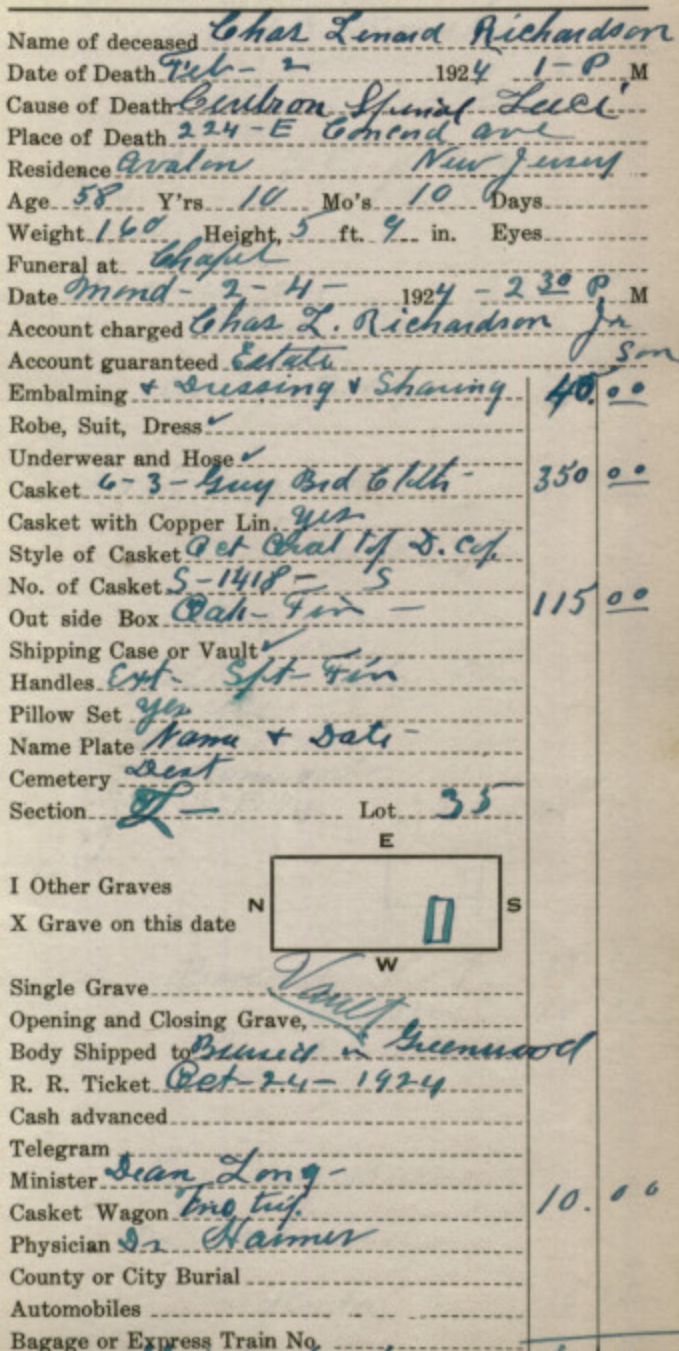 Name of deceased Chas Lenard Richardson
Date of Death Feb - 2 1924 1 - P M
Cause of Death Spinal
Place of Death 224 - E Concord ave
Residence Avalon New Jersey
Age 58 Y'rs 10 Mo's 10 Days
Weight 160 Height, 5 ft. 9 in. Eyes
Funeral at Chapel
Date Mond - 2 - 4 - 1924 - 2 30 P M
Account charged Chas L. Richardson Jr
Son
Account guaranteed Estate
Embalming + Dressing & Shaving 40. 00
Robe, Suit, Dress ✓
Underwear and Hose ✓
Casket 6 - 3 - Gray Brd Cloth - 350 00
Casket with Copper Lin. yes
Style of Casket Oct Oval top D. Cap
No. of Casket S - 1418 - S
Out side Box Oak - Fin - 115 00
Shipping Case or Vault ✓
Handles Ext - Fin
Pillow Set yes
Name Plate Name + Date -
Cemetery
Section L - Lot 35
E
I Other Graves
N S
X Grave on this date
W
Single Grave Vault
Opening and Closing Grave,
Body Shipped to Buried in Greenwood
R. R. Ticket Oct - 24 - 1924
Cash advanced
Telegram
Minister Dean Long -
Casket Wagon Two trip. 10. 00
Physician Dr
County or City Burial
Automobiles
Bagage or Express Train No.